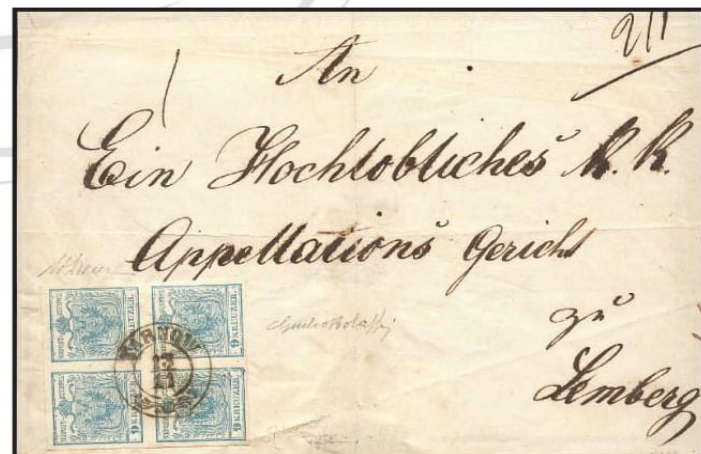 2/1
An
Ein Hochlobliches k. k.
Appellations Gericht
zu
Lemberg
TARNOW
9 KREUZER
9 KREUZER
9 KREUZER
9 KREUZER